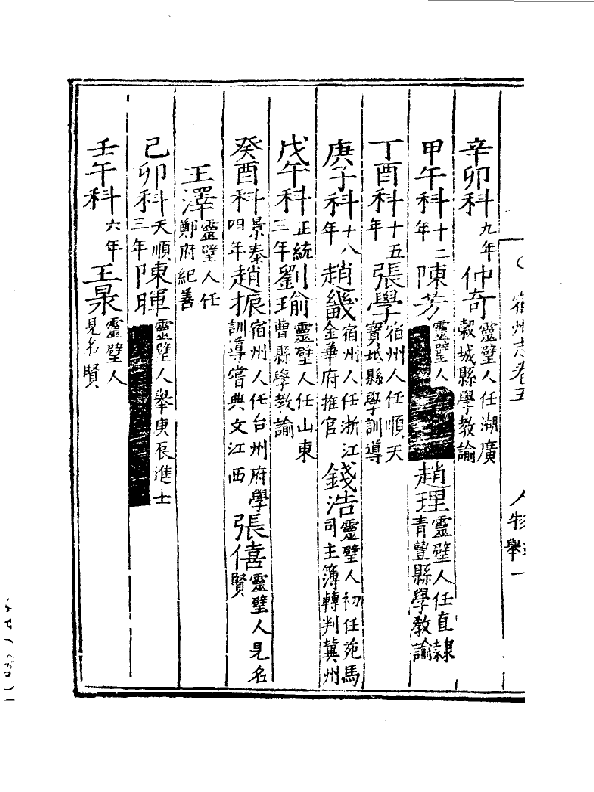 宿州志卷五 人物 舉一
辛卯科九年仲奇靈璧人任湖廣榖城縣學教諭
甲午科十二年陳芳靈璧人 趙理靈璧人任直隸青豐縣學教諭
丁酉科十五年張學宿州人任順天寳坻縣學訓導
庚子科十八年趙畿宿州人任浙江金華府推官 錢浩靈璧人初任苑馬司主簿轉判冀州
戊午科正統三年劉瑜靈璧人任山東曹縣學教諭
癸酉科景泰四年趙振宿州人任台州府學訓導嘗典文江西 張僖靈璧人見名賢
王澤靈璧人任鄭府紀善
己卯科天順三年陳暉靈璧人舉庚辰進士
壬午科六年王杲靈璧人見名賢